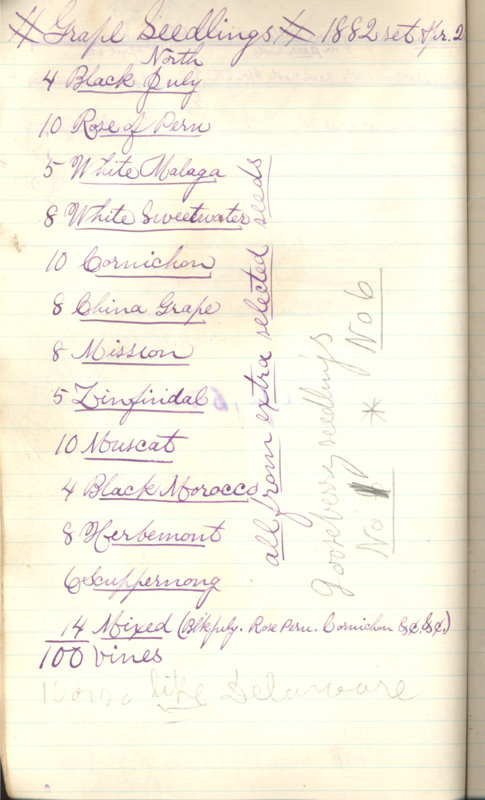 # Grape Seedlings # 1882 set Apr. 2
North
4 Black July
10 Rose of Peru
5 White Malaga
8 White Sweetwater
10 Cornichon
8 China Grape
8 Mission
5 Zinfindal
10 Muscat
4 Black Morocco
8 Herbemont
6 Scuppernong
14 Mixed (Blk july. Rose Peru. Cornichon &c. &c.)
100 vines
like Delaware
all from extra selected seeds
Gooseberry seedlings
No * No 6